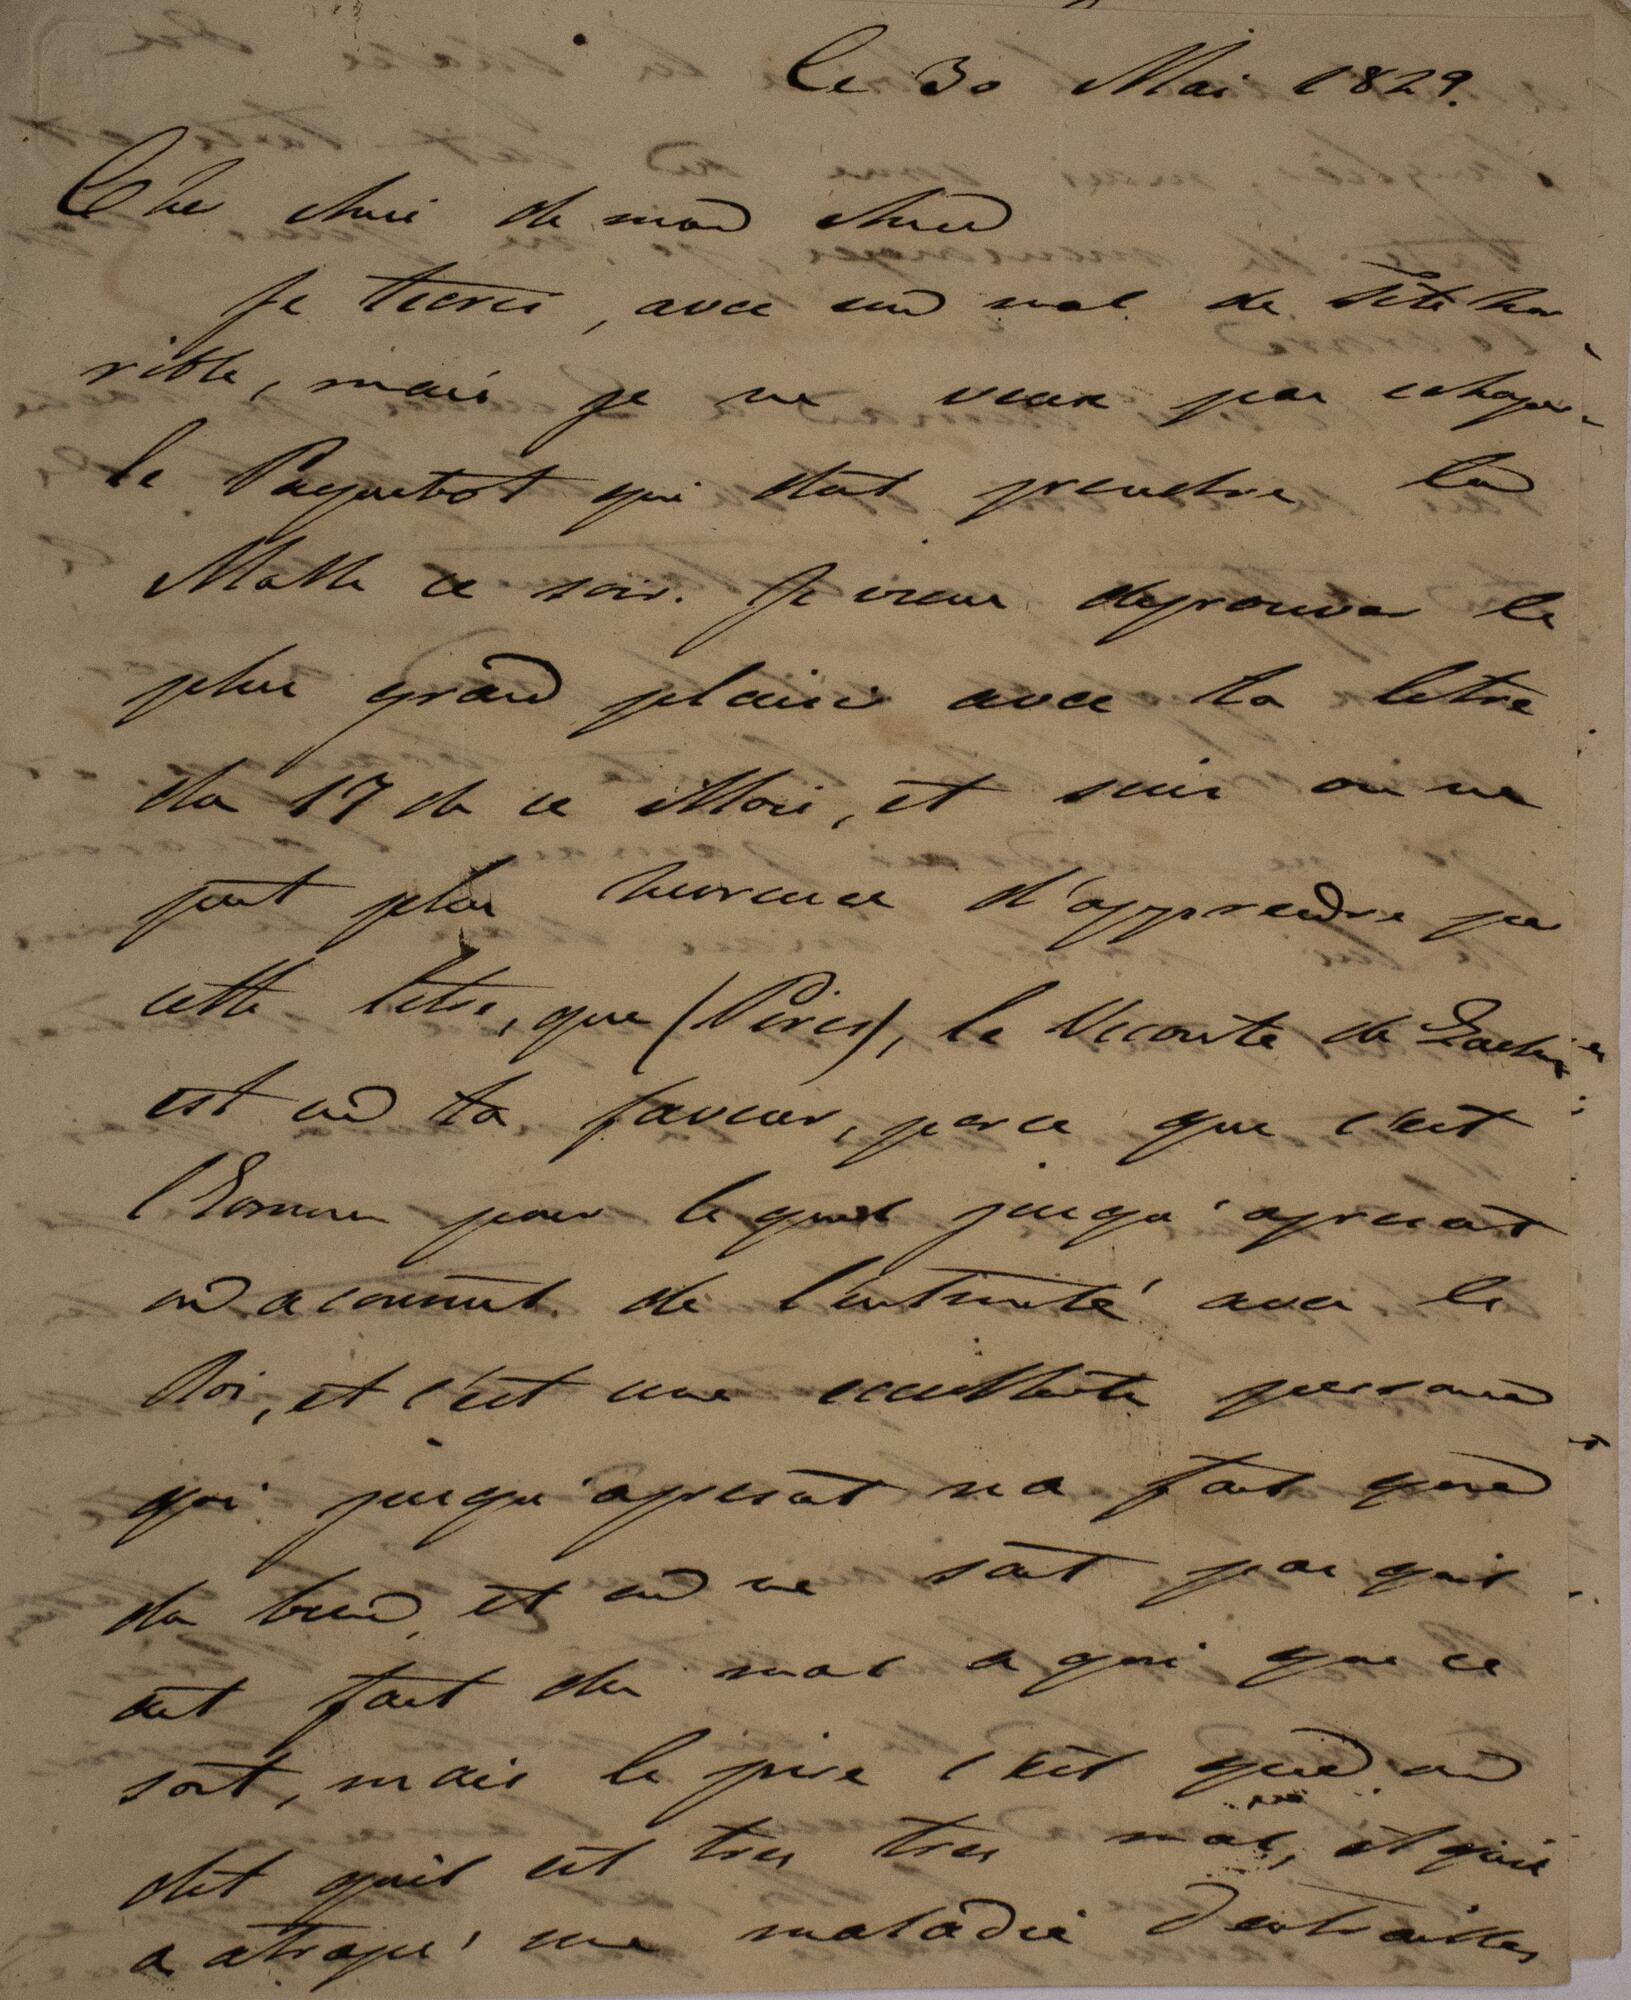 Le 30 Mai 1829.
Cher Ami de mon Ame
Je t'ecris, avec un mal de tete hor
rible, mais je ne veux pas echaper
le Paquebot qui doit prendre la
Malle ce soir. Je viens deprouver le
plus grand plaisir avec ta letre
du 17 de ce Mois, et suis on ne
peut plus heureux d'apprendre par
cette letre, que (Pires), le Vicomte de
est en ta faveur, parce que c'est
l'homme pour le quel jusqu'apresent
on a connut de l'intimité avec le
Roi, et c'est une excellente personne
qui jusqu'apresent n'a fait que
du bien, et on ne sait pas quil
ait fait du mal a qui que ce
soit, mais le pire c'est que on
dit quil est tres tres mal, et quil
a atrapé une maladie d'entrailles